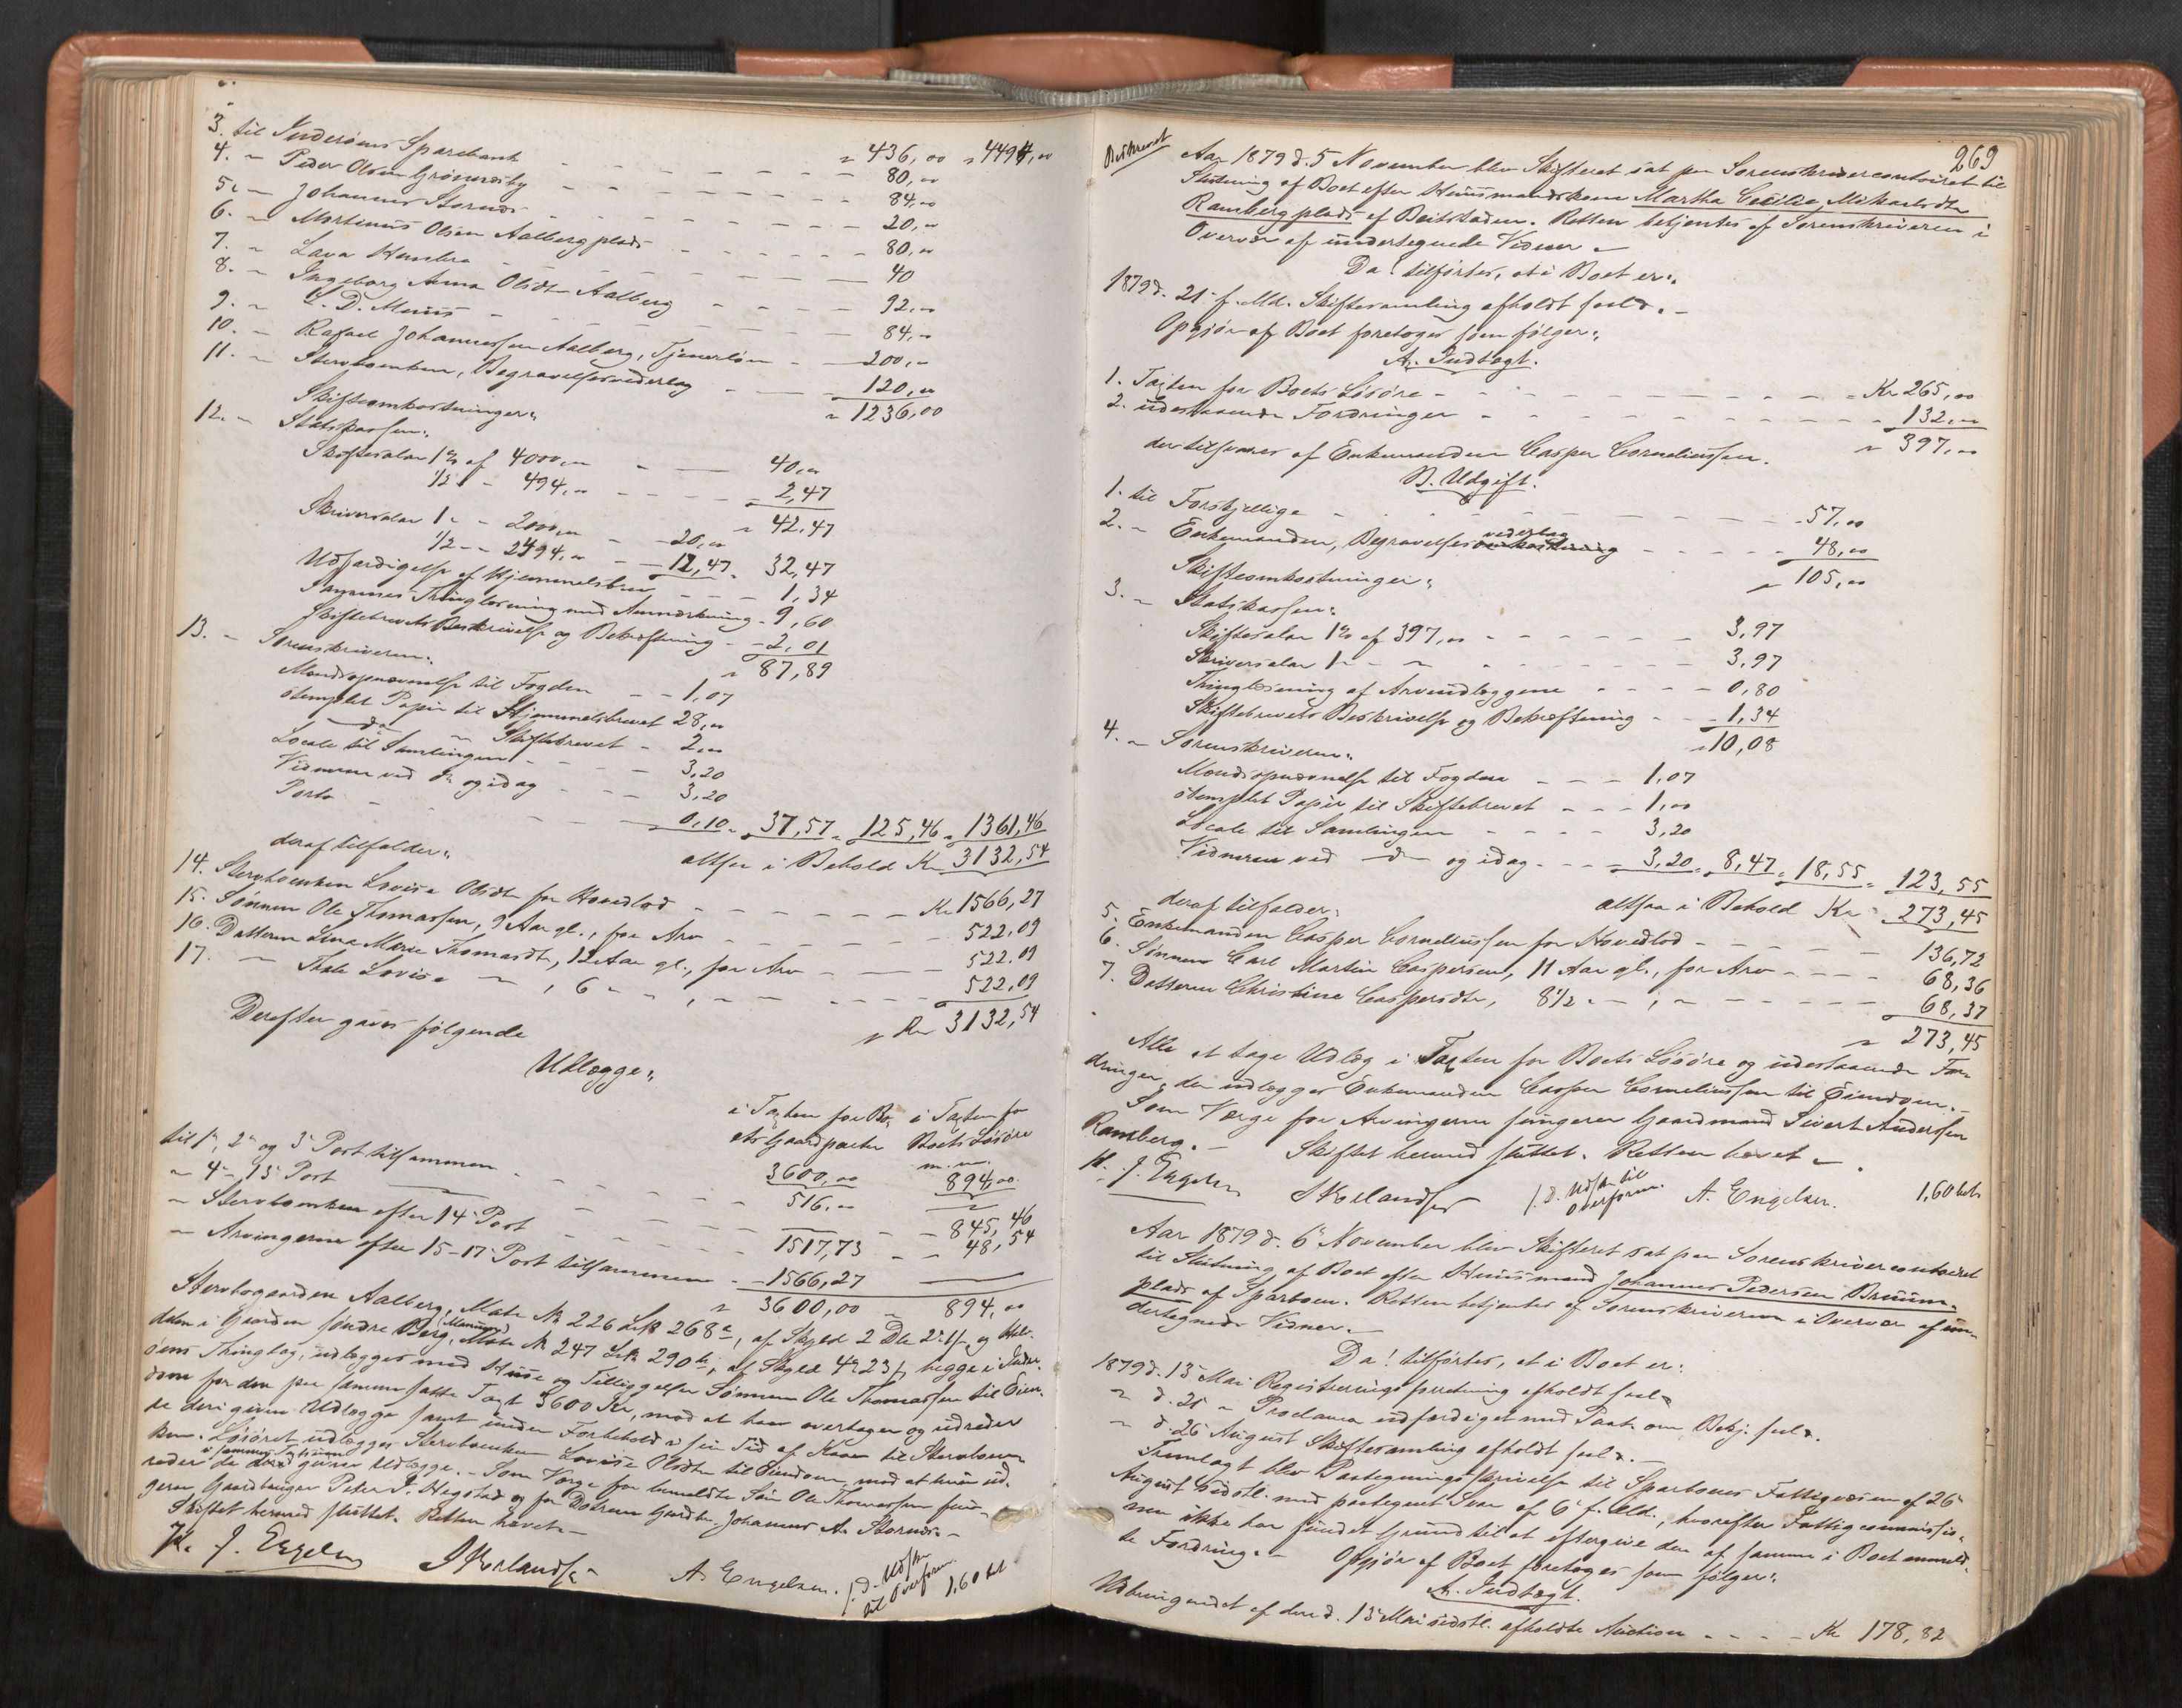 3. til Inderøens Sparebank - - - - " 436,00 " 4494,00
4. " Peder Olsen Grønnesby - - - - 80,00
5. " Johannes Stornæs - - - - 84,00
6. " Martinus Olsen Aalbergplads - - - - 20,00
7. " Lava - - - - 80,00
8. " Ingeborg Anna Olsdtr Aalberg - - - 40
9. " D. - - - - 92,00
10. " Rafael Johannessen Aalberg, Tjenerløn - - 84,00
11. " Stervboenken, Begravelsesvederlag - - 200,00
120,00
" 1236,00
Skifteomkostninger:
12. " Statskassen:
Skiftesalær 1% af 4000,00 - - 40,00
1/2 " - 494,00 - - - - 2,47
" 42,47
Skriversalær 1 " - 2000,00 - - 20,00
1/2 - " 2494,00 - - 12,47 " 32,47
Udfærdigelse af Hjemmelsbrev - - - 1,34
Sammes Thinglæsning med Anmærkning - 9,60
Skiftebrevets Beskrivelse og Bekræftning - 2,01
" 87,89
13. " Sorenskriveren:
Mændsopnævnelse til Fogden - - 1,07
stemplet Papir til Hjemmelsbrevet 28,00
do " Skiftebrevet - 2,00
Locale til Samlingen - - - - 3,20
Vidnerne ved do og idag - - - 3,20
Porto - - - - 0,10 " 37,57 " 125,46 " 1361,46
altsaa i Behold Kr 3132,54
deraf tilfalder:
14. Stervboenken Lovise Olsdtr for Hovedlod - - - - Kr 1566,27
15. Sønnen Ole Thomassen, 9 Aar gl., for Arv - - - - 522,09
16. Datteren Lina Marie Thomasdt, 12 Aar gl., for Arv - - - 522,09
17. " Thale Lovise " , 6 " " , " " - - - - 522,09
" Kr 3132,54
Derefter gaves følgende
Udlægge:
i Taxten for Bo- i Taxten for
ets Gaardparter Boets Løsøre
m. m.
til 1', 2' og 3' Post tilsammen - - - - 3600,00 894,00
" 4'-13' Post - - - - 516,00
" Stervboenken efter 14' Post - - - - 845,46
" Arvingerne efter 15-17' Post tilsammen - 1517,73 - - 48,54
- 1566,27
" 3600,00 " 894,00
Stervbogaarden Aalberg, Matr. No 226 LNo 268a, af Skyld 2 Dlr 2 " 1 ß, og Halv-
delen i Gaarden søndre Berg, Matr. No 247 LNo 290b, af Skyld 4 " 23 ß, begge i Inder-
øens Thinglag, udlægges med Huse og Tilliggelser Sønnen Ole Thomassen til Eien-
dom for den paa samme satte Taxt 3600 Kr, mod at han overtager og udreder
de deri givne Udlægge samt under Forbehold i sin Tid af Kaar til Stervboen-
ken. Løsøret udlægges Stervboenken Lovise Olsdtr til Eiendom, mod at hun ud-
reder de i sammes Taxtsum givne Udlægge. - Som Værge for bemeldte Søn Ole Thomassen fun-
gerer Gaardbruger Peter P. Hegstad og for Døtrene Gaardbr. Johannes A. Stornæs. -
Skiftet hermed sluttet. Retten hævet. -
J. Engelsen Erlandsen A. Engelsen. 1,60 bet
til Overform.
269
Beskrevet
Aar 1879 d. 5 November blev Skifteret sat paa Sorenskrivercontoiret til
Slutning af Boet efter Huusmandskone Martha Cecilie Mikalsdtr
Ramberg plads af Beitstaden. Retten betjentes af Sorenskriveren i
Overvær af undertegnede Vidner -
Da! tilførtes, at i Boet er:
1879 d. 21 f. Md. Skiftesamling afholdt
Opgjør af Boet foretoges som følger:
A. Indtægt.
1. Taxten for Boets Løsøre - - - - Kr 265,00
2. udestaaende Fordringer - - - - 132,00
" 397,00
der tilsvares af Enkemanden Casper Corneliussen.
B. Udgift.
1. til Forskjellige - - - - 57,00
2. " Enkemanden, Begravelsesvederlag - - - - 48,00
" 105,00
Skifteomkostninger:
3. " Statskassen:
Skiftesalær 1% af 397,00 - - - - 3,97
Skriversalær 1 " - " - - - - 3,97
Thinglæsning af Arveudlæggene - - - - 0,80
Skiftebrevets Beskrivelse og Bekræftning - - 1,34
" 10,08
4. " Sorenskriveren:
Mændsopnævnelse til Fogden - - - 1,07
stemplet Papir til Skiftebrevet - - - 1,00
Locale til Samlingen - - - - 3,20
Vidnerne ved do og idag - - - 3,20 " 8,47 " 18,55 " 123,55
altsaa i Behold Kr 273,45
deraf tilfalder:
5. Enkemanden Casper Corneliussen for Hovedlod - - - - 136,72
6. Sønnen Carl Martin Caspersen, 11 Aar gl., for Arv - - - - 68,36
7. Datteren Christine Caspersdtr, 8 1/2 " - , " - - - - 68,37
" 273,45
Alle at tage Udlæg i Taxten for Boets Løsøre og udestaaende For-
dringer, der udlægges Enkemanden Casper Corneliussen til Eiendom. -
Som Værge for Arvingerne fungerer Gaardmand Sivert Andersen
Ramberg. - Skiftet hermed sluttet. Retten hævet -
J. Engelsen Erlandsen til Overform. A. Engelsen. 1,60 bet
Aar 1879 d. 6' November blev Skifteret sat paa Sorenskrivercontoiret
til Slutning af Boet efter Huusmand Johannes Pedersen Bruum-
plads af Sparboen. Retten betjentes af Sorenskriveren i Overvær af un-
dertegnede Vidner. -
Da! tilførtes, at i Boet er:
1879 d. 13 Mai Registreringsforretning afholdt
" d. 21 " Proclama udfærdiget med Paat. om Bekj.
" d. 26 August Skiftesamling afholdt
Fremlagt blev Paategningsskrivelse til Sparboens Fattigvæsen af 26'
August sidstl. med paategnet Svar af 6' f. Md., hvorefter Fattigcommissio-
nen ikke har fundet Grund til at eftergive den af samme i Boet anmeld-
te Fordring. - Opgjør af Boet foretoges som følger:
A. Indtægt.
Udbringendet af den d. 13 Mai sidstl. afholdte Auction - - - - Kr 178,82